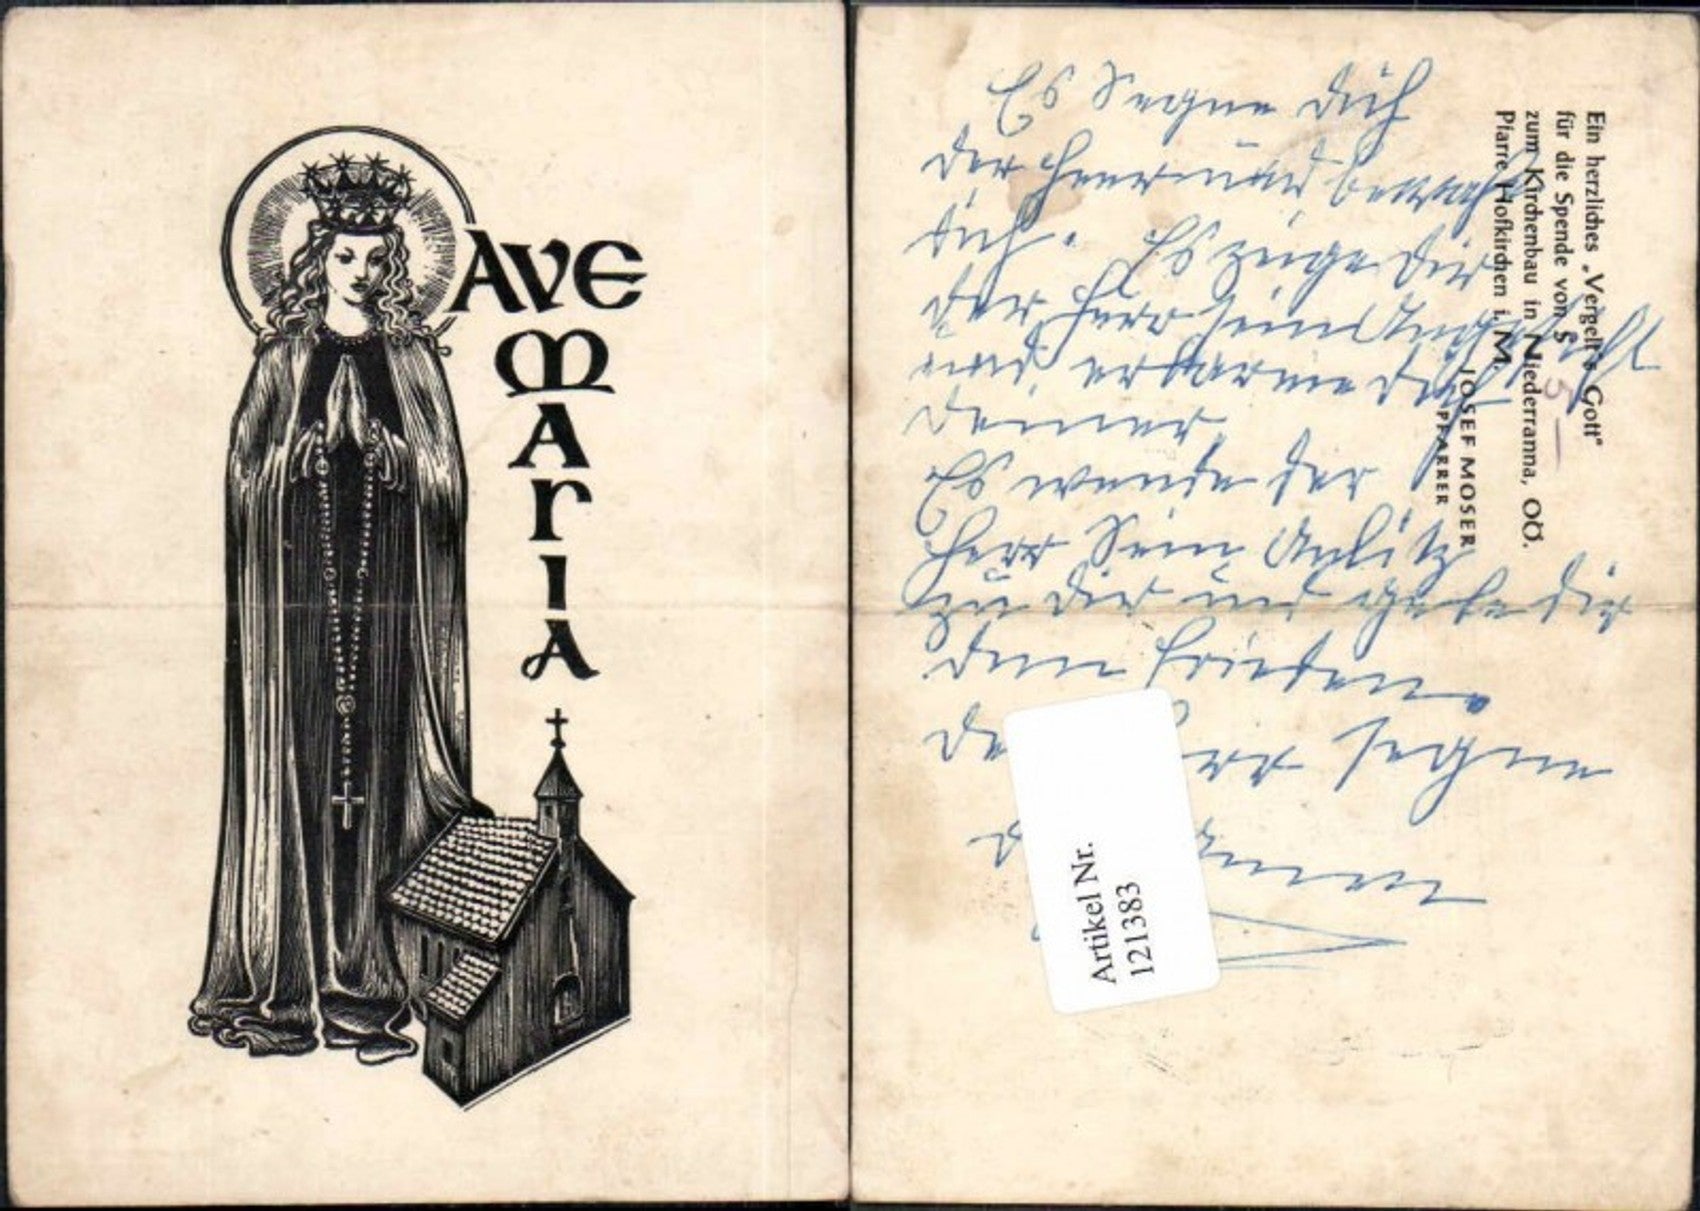 AVE
MARIA
Es Segne dich
der Herr und bewahre
dich. Es zeige dir
der Herr sein Angesicht
und erbarme dich
deiner
Es wende der
Herr Sein Antlitz
zu dir und gebe dir
den Frieden.
De rr segne
Ein herzliches „Vergelt's Gott"
für die Spende von S 5—
zum Kirchenbau in Niederranna, OÖ.
Pfarre Hofkirchen i. M.
JOSEF MOSER
PFARRER
Artikel Nr.
121383